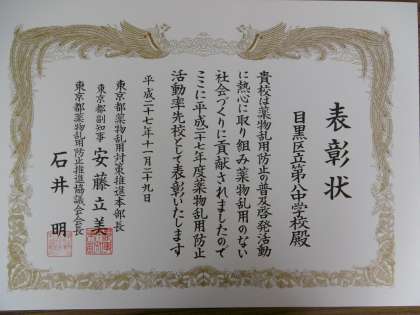 表彰状
目黒区立第八中学校殿
貴校は薬物乱用防止の普及啓発活動
に熱心に取り組み薬物乱用のない
社会づくりに貢献されましたので
ここに平成二十七年度薬物乱用防止
活動率先校として表彰いたします
平成二十七年十一月二十九日
東京都薬物乱用対策推進本部長
東京都副知事 安藤立美
東京都薬物乱用防止推進協議会会長
石井明